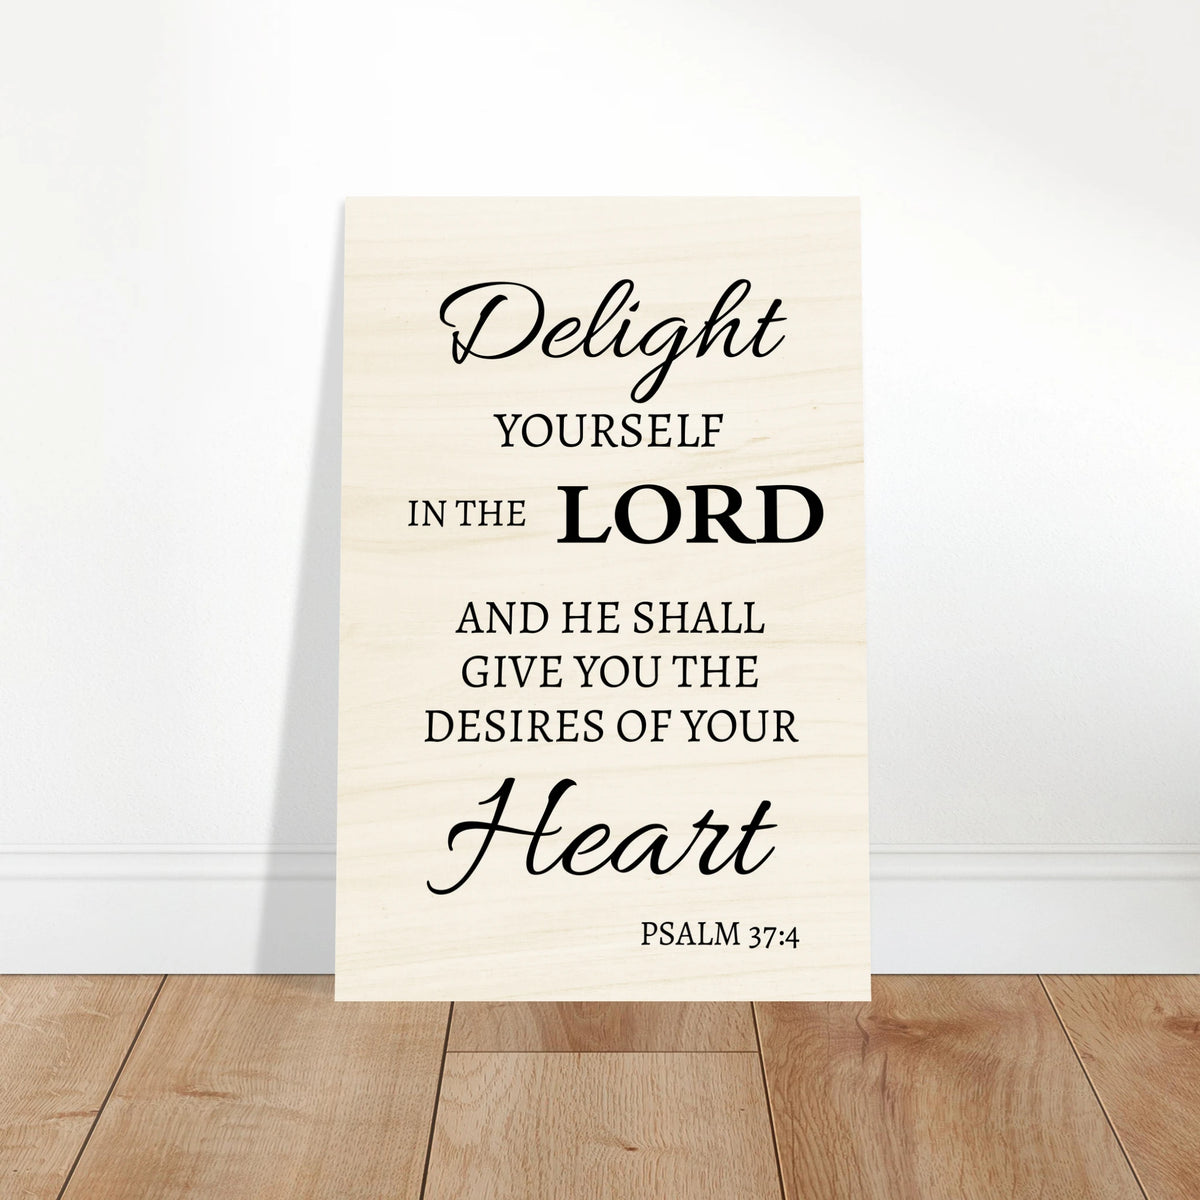 Delight
YOURSELF
IN THE LORD
AND HE SHALL
GIVE YOU THE
DESIRES OF YOUR
Heart
PSALM 37:4